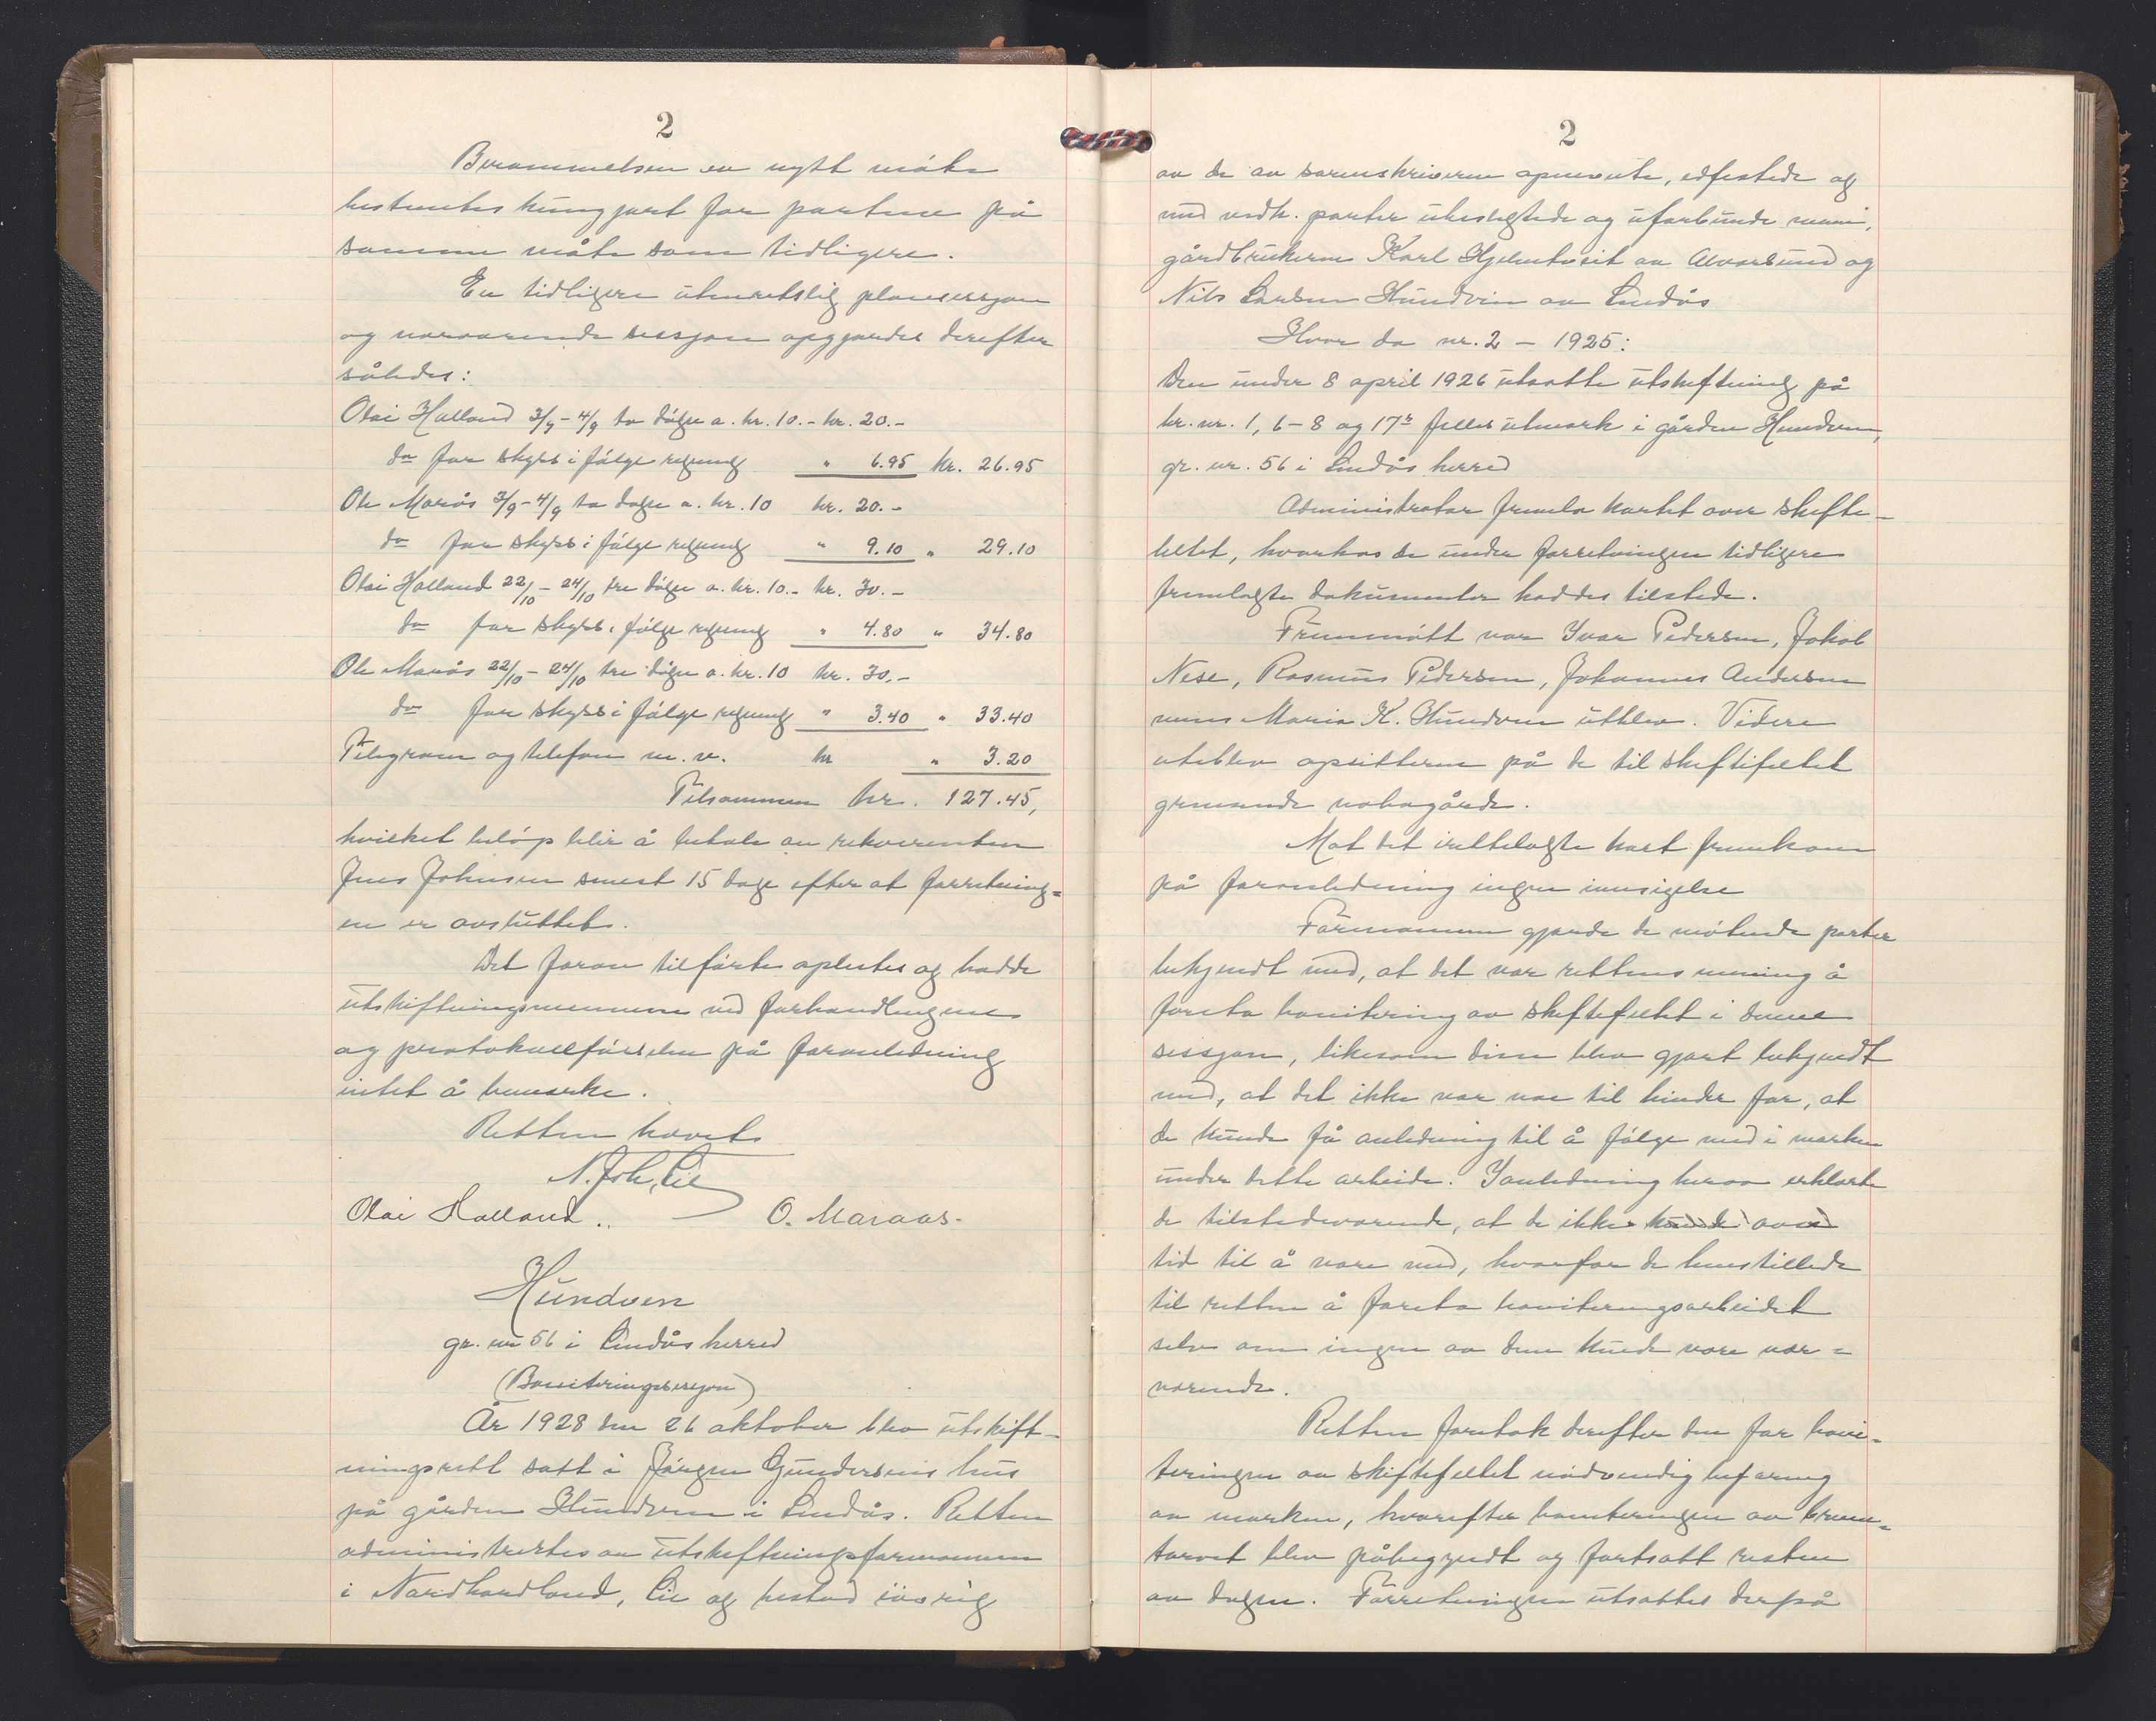 2
Berammelsen av nytt møte
bestemtes kungjort for partene på
samme måte som tidligere.
En tidligere utenretslig plansesjon
og nærværende sesjon opgjordes derefter
således:
Olai Halland 3/9 - 4/9 to døgn a. kr. 10.- kr. 20.-
do for skyss i følge regning " 6.95 kr. 26.95
Ole Marås 3/9 - 4/9 to døgn a. kr. 10 kr. 20.-
do for skyss i følge regning " 9.10 " 29.10
Olai Halland 22/10 - 24/10 tre døgn a. kr. 10.- kr. 30.-
do for skyss i følge regning " 4.80 " 34.80
Ole Marås 22/10 - 24/10 tre døgn a. kr. 10 kr. 30.-
do for skyss i følge regning " 3.40 " 33.40
Telegram og telefon m. v. kr " 3.20
Tilsammen kr. 127.45,
hvilket beløp blir å betale av rekvirenten
Jens Johnsen senest 15 dage efter at forretning=
en er avsluttet.
Det foran tilførte oplestes og hadde
utskiftningsmennene ved forhandlingene
og protokollførselen på foranledning
intet å bemerke.
Retten hævet
N. Joh. Lie
Olai Halland. O. Maraas.
Hundven
gr. nr 56 i Lindås herred
(Boniteringssesjon)
År 1928 den 26 oktober blev utskift-
ningsrett satt i Jørgen Gundersens hus
på gården Hundven i Lindås. Retten
administrertes av utskiftningsformannen
i Nordhordland, Lie og bestod iøvrig
2
av de av sorenskriveren opnevnte, edfestede og
med vedk. parter ubeslegtede og uforbundne menn,
gårdbrukerne Karl Hjelmtveit av Alversund og
Nils Larsen Hundvin av Lindås
Hvor da nr. 2 - 1925:
Den under 8 april 1926 utsatte utskiftning på
br. nr. 1, 6-8 og 17s felles utmark i gården Hundven,
gr. nr. 56 i Lindås herred
Administrator fremla kartet over skifte-
feltet, hvorhos de under forretningen tidligere
fremlagte dokumenter haddes tilstede.
Fremmøtt var Ivar Pedersen, Jakob
Nese, Rasmus Pedersen, Johannes Andersen
mens Maria K. Hundven utblev. Videre
uteblev opsitterne på de til skiftefeltet
grensende nabogårde.
Mot det irettelagte kart fremkom
på foranledning ingen innsigelse
Formannen gjorde de møtende parter
bekjendt med, at det var rettens mening å
foreta bonitering av skiftefeltet i denne
sesjon, likesom dem blev gjort bekjendt
med, at det ikke var noe til hinder for, at
de kunde få anledning til å følge med i marken
under dette arbeide. I anledning herav erklærte
de tilstedeværende, at de ikke kunde avse
tid til å være med, hvorfor de henstillede
til retten å foreta boniteringsarbeidet
selv om ingen av dem kunde være nær=
værende.
Retten foretok derefter den for boni=
teringen av skiftefeltet nødvendig befaring
av marken, hvorefter boniteringen av brenn=
torvet blev påbegyndt og fortsatt resten
av dagen. Forretningen utsattes derpå